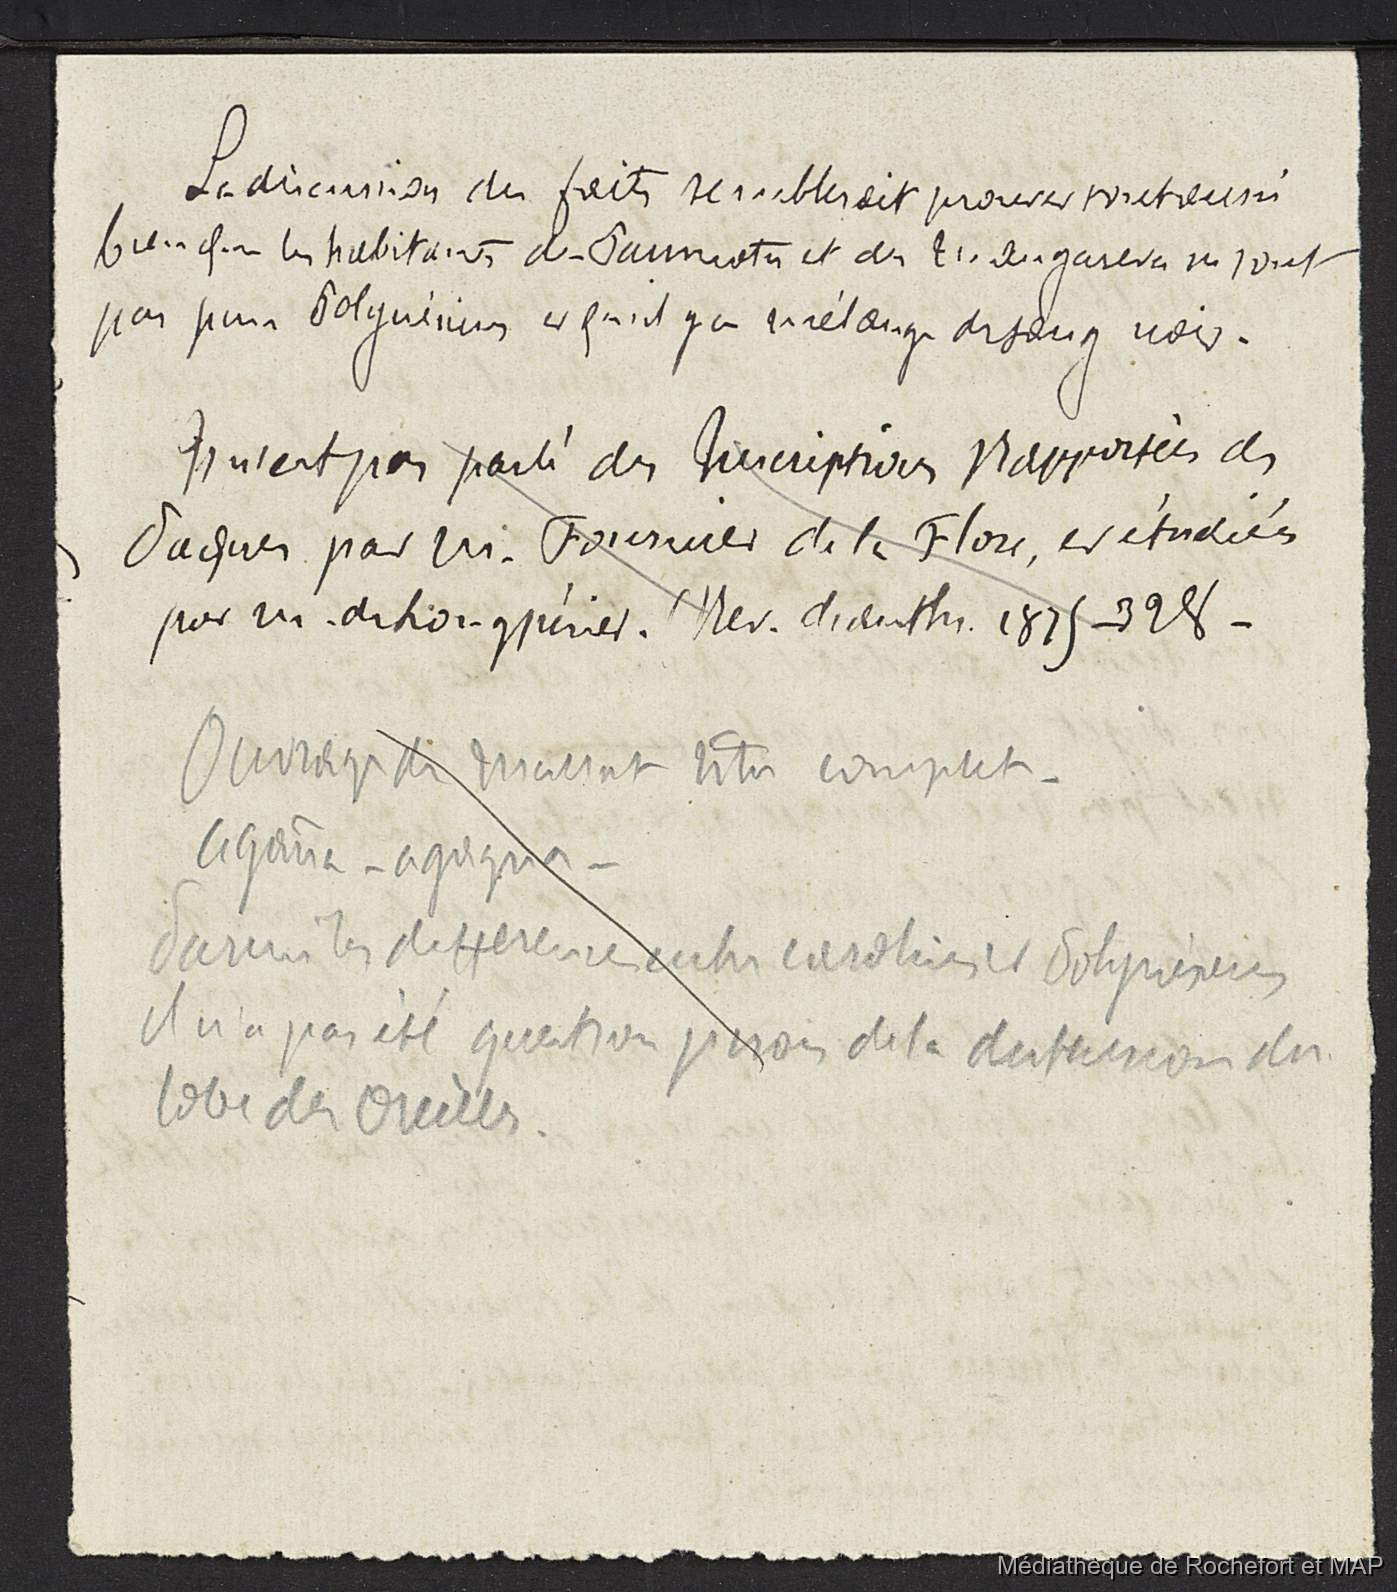 La discussion des faits semblerait prouver tout aussi
bien que les habitants des Paumotu et des ne sont
pas purs Polynésiens et qu'il y a mélange de sang noir.
Il n'est pas parlé des Inscriptions Rapportées de
Pâques par M. Fournier de la Flore, et étudiés
par M. de Longpérier. Rev. d'anthr. 1875 - 328 -
Ouvrage de complet -
agaña - agagna -
Parmi les différences entre carolins et Polynésiens
il n'a pas été question je crois de la distension du
lobe des oreilles.
Médiathèque de Rochefort et MAP